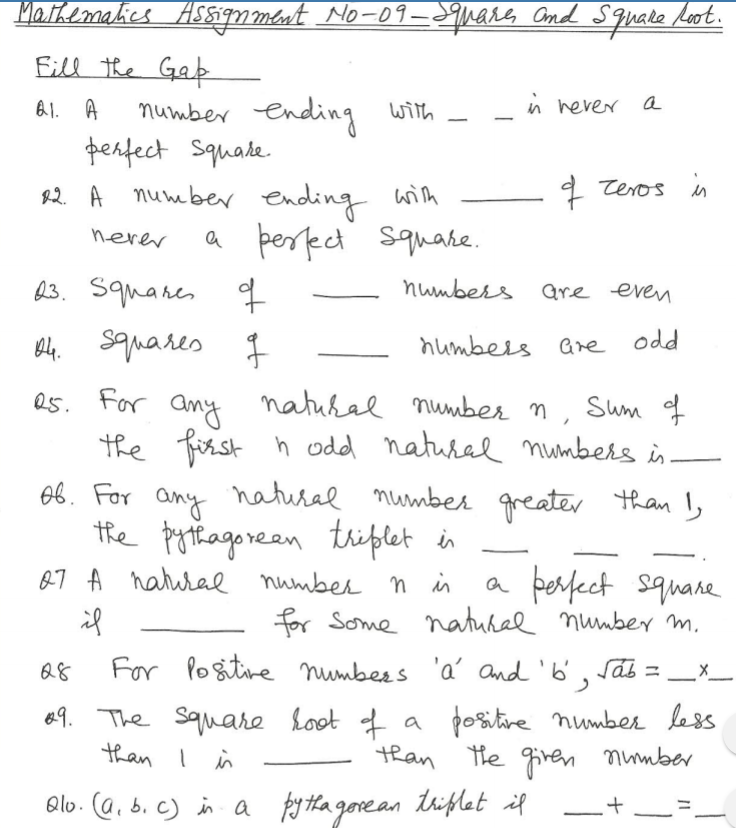 Mathematics Assignment No-09-Square and Square Root.
Fill the Gap
Q1. A number ending with _ _ is never a
perfect square.
Q2. A number ending with ____ of zeros is
never a perfect square.
Q3. Squares of ____ numbers are even
Q4. Squares of ____ numbers are odd
Q5. For any natural number n, Sum of
the first n odd natural numbers is __
Q6. For any natural number greater than 1,
the pythagorean triplet is __ __ __.
Q7 A natural number n is a perfect square
if ____ for some natural number m.
Q8 For Positive numbers 'a' and 'b', √ab = __x__
Q9. The square root of a positive number less
than 1 is ____ than the given number
Q10. (a, b, c) is a pythagorean triplet if __+__=__